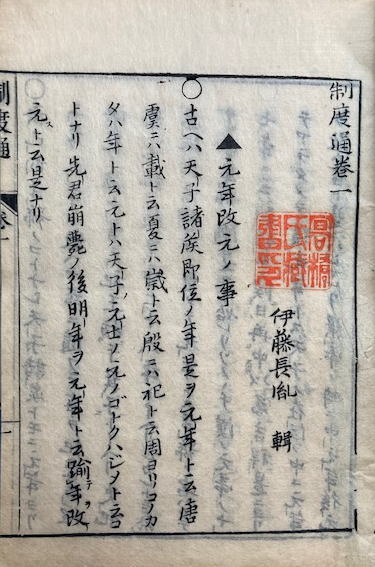 制度通巻一
高橋
氏蔵
書印
伊藤長胤 輯
▲元年改元ノ事
○古ヘハ天子諸侯即位ノ年是ヲ元年ト云唐
虞ニハ載ト云夏ニハ歳ト云殷ニハ祀ト云周ヨリコノカ
タハ年ト云元トハ天子ノ元士ノ元ノゴトクハジメト云コ
トナリ先君崩薨ノ後明年ヲ元年ト云踰テ年ヲ改
元スト云是ナリ
制度通 巻一